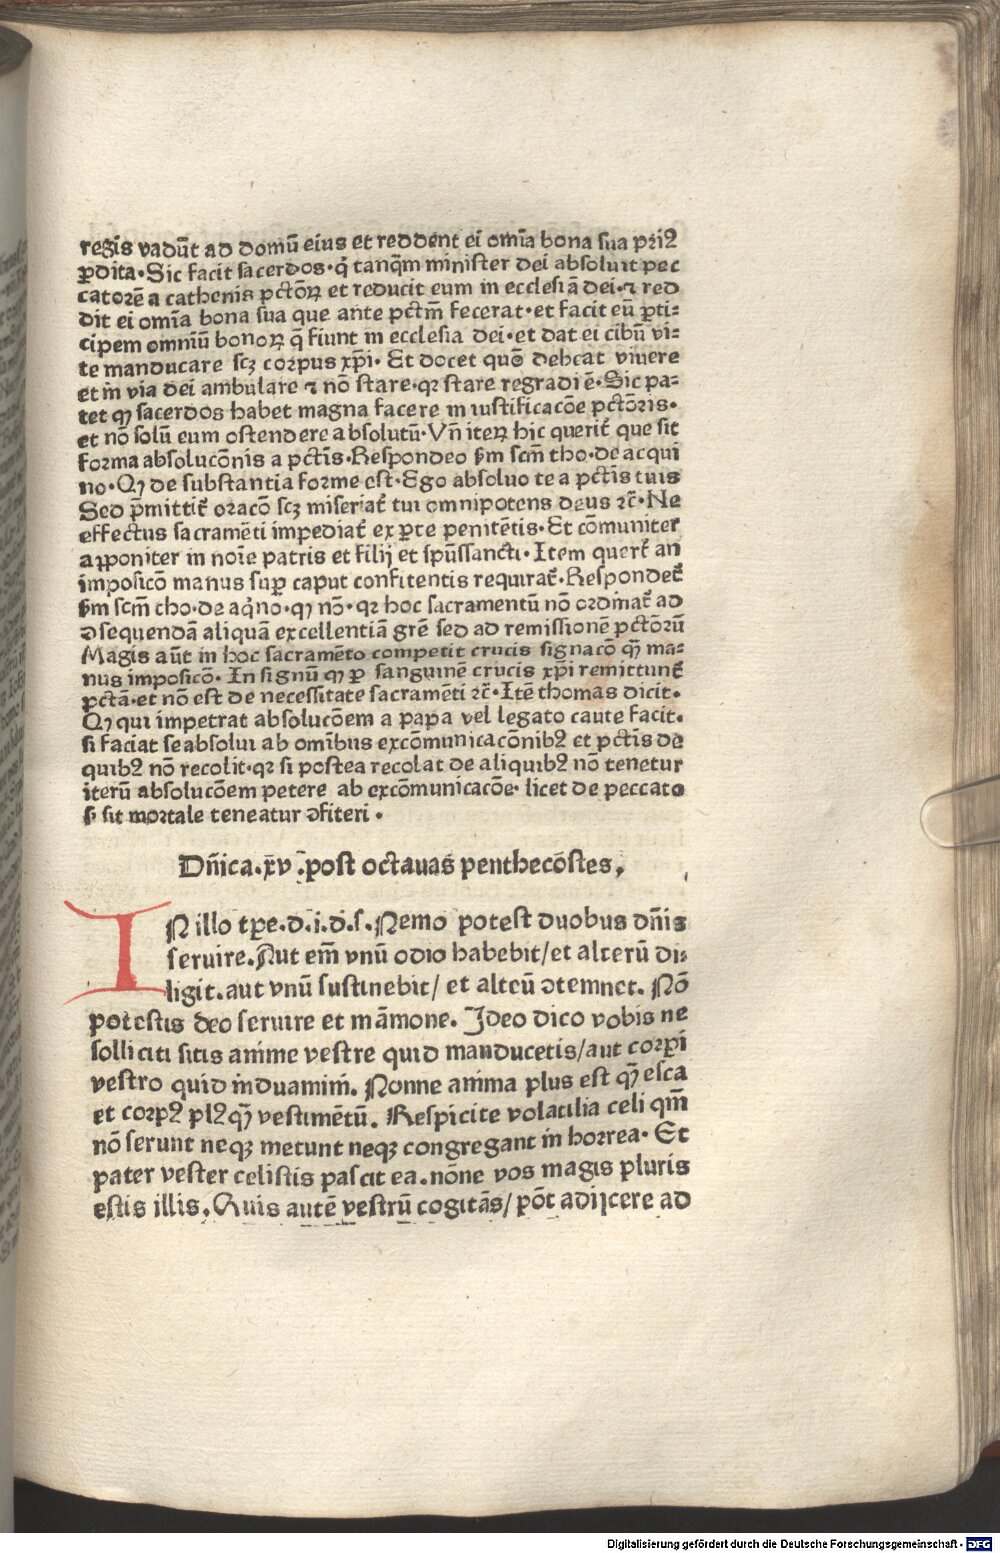 regis vadūt ad domū eius et reddent ei omīa bona sua pri⁹
ꝑdita·Sic facit sacerdos·q̇ tanq̄m minister dei absoluit pec
catorē a cathenis pctōꝝ et reducit eum in ecclesiā dei·⁊ red
dit ei omīa bona sua que ante pctm̄ fecerat·et facit eū ꝑti⸗
cipem omniū bonoꝝ q̄ fiunt in ecclesia dei·et dat ei cibū vi⸗
te manducare scꝫ corpus xp̄i· Et docet quō debeat viuere
et in via dei ambulare ⁊ nō stare·qꝛ stare regradi ē·Sic pa⸗
tet ꝙ sacerdos habet magna facere in iustificacōe pctōris·
et nō solū eum ostendere absolutū·Vn̄ iteꝝ hic querit̄ que sit
forma absolucōnis a pctīs·Respondeo ẜm scm̄ tho·de acqui
no·Ꝙ de substantia forme est·Ego absoluo te a pctīs tuis
Sed p̄mittit̄ oracō scꝫ miseriat̄ tui omnipotens deus ⁊c̄·Ne
effectus sacramēti impediat̄ ex ꝑte penitētis·Et cōmuniter
apponiter in noīe patris et filij et spūssancti·Item querit̄ an
imposicō manus suꝑ caput confitentis requirat̄·Respondet̄
ẜm scm̄ tho·de aq̇no·ꝙ nō·qꝛ hoc sacramentū nō ordinat̄ ad
ↄsequendā aliquā excellentiā grē sed ad remissionē pctōrū
Magis aūt in hoc sacramēto competit crucis signacō ꝙ̄ ma⸗
nus imposicō· In signū ꝙ ꝑ sanguinē crucis xp̄i remittunt̄
pctā·et nō est de necessitate sacramēti ⁊c̄·Itē thomas dicit·
Ꝙ qui impetrat absolucōem a papa vel legato caute facit·
si faciat se absolui ab omībus excōmunicacōnib⁹ et pctīs de
quib⁹ nō recolit·qꝛ si postea recolat de aliquib⁹ nō tenetur
iterū absolucōem petere ab excōmunicacōe· licet de peccato
si sit mortale teneatur ↄfiteri·
Dn̄ica·xv·post octauas penthecōstes,
IN illo tꝑe.d.i.d.s.Nemo potest duobus dn̄is
seruire.Aut em̄ vnū odio habebit/et alterū di⸗
ligit.aut vnū sustinebit/ et alteū ↄtemnet. Nō
potestis deo seruire et māmone. Ideo dico vobis ne
solliciti sitis anime vestre quid manducetis/aut corpi
vestro quid induamini. Nonne anima plus est ꝙ̄ esca
et corp⁹ pl⁹ꝙ̄ vestimētū. Respicite volatilia celi qm̄
nō serunt neqꝫ metunt neqꝫ congregant in horrea· Et
pater vester celistis pascit ea.nōne vos magis pluris
estis illis.Quis autē vestrū cogitās/ pōt adijcere ad
Digitalisierung gefördert durch die Deutsche Forschungsgemeinschaft - DFG